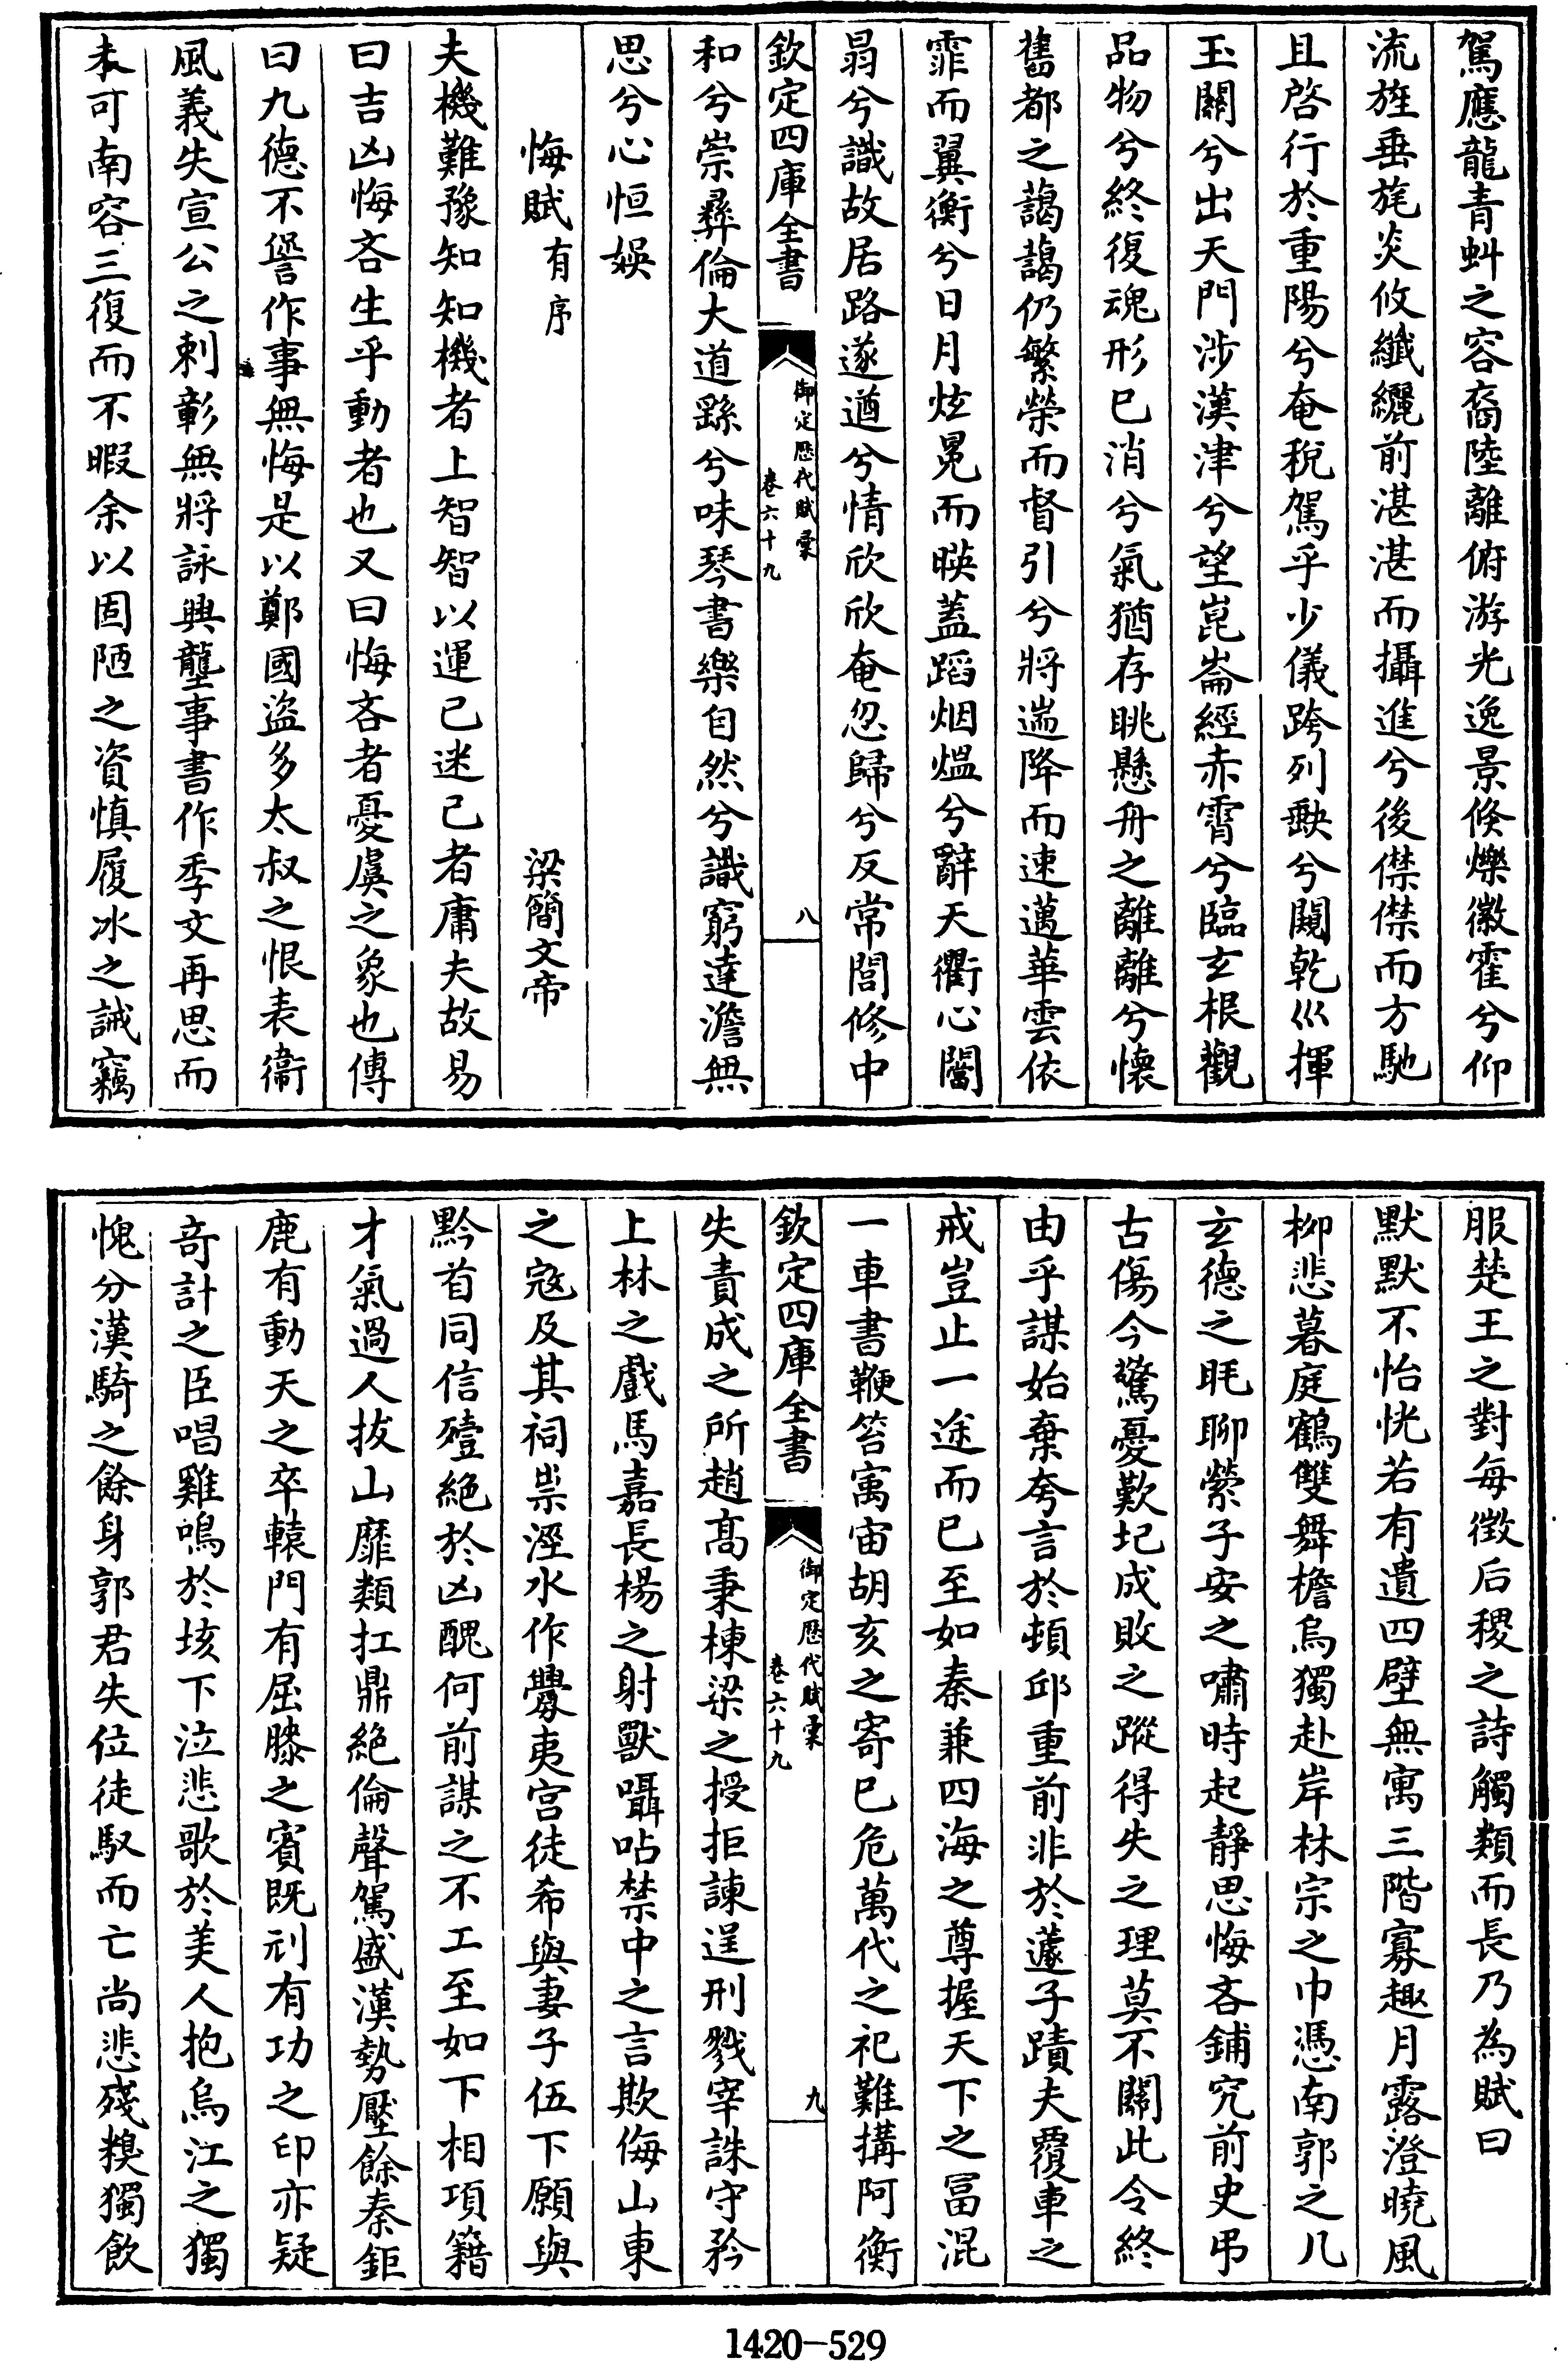 駕應龍青虯之容裔陸離俯游光逸景倏爍徽霍兮仰
流旌垂旄炎攸纖纚前湛湛而攝進兮後僸僸而方馳
且啓行於重陽兮奄稅駕乎少儀跨列缺兮闚乾巛揮
玉關兮出天門涉漢津兮望崑崙經赤霄兮臨玄根觀
品物兮終復魂形已消兮氣猶存眺懸舟之離離兮懷
舊都之藹藹仍繁榮而督引兮將遄降而速邁華雲依
霏而翼衡兮日月炫晃而映蓋蹈烟熅兮辭天衢心闓
昜兮識故居路遂遒兮情欣欣奄忽歸兮反常閭修中
欽定四庫全書
御定歷代賦彙
卷六十九
八
和兮崇彝倫大道繇兮味琴書樂自然兮識窮達澹無
思兮心恒娛
悔賦有序
梁簡文帝
夫機難豫知知機者上智智以運己迷己者庸夫故易
曰吉凶悔吝生乎動者也又曰悔吝者憂虞之象也傳
曰九德不諐作事無悔是以鄭國盜多太叔之恨表衞
風義失宣公之刺彰無將詠興壟事書作季文再思而
未可南容三復而不暇余以固陋之資慎履冰之誡竊
服楚王之對每徵后稷之詩觸類而長乃為賦曰
默默不怡恍若有遺四壁無寓三階寡趣月露澄曉風
柳悲暮庭鶴雙舞檐烏獨赴岸林宗之巾憑南郭之几
玄德之毦聊縈子安之嘯時起靜思悔吝鋪究前史弔
古傷今驚憂歎圮成敗之蹤得失之理莫不關此令終
由乎謀始棄夸言於頓邱重前非於蘧子蹟夫覆車之
戒豈止一途而已至如秦兼四海之尊握天下之富混
一車書鞭笞寓宙胡亥之寄已危萬代之祀難搆阿衡
欽定四庫全書
御定歷代賦彙
卷六十九
九
失責成之所趙髙秉棟梁之授拒諫逞刑戮宰誅守矜
上林之戲馬嘉長楊之射獸囁呫禁中之言欺侮山東
之寇及其祠祟涇水作釁夷宮徒希與妻子伍下願與
黔首同信殪絕於凶醜何前謀之不工至如下相項籍
才氣過人拔山靡類扛鼎絕倫聲駕盛漢勢壓餘秦鉅
鹿有動天之卒轅門有屈膝之賓既刓有功之印亦疑
奇計之臣唱雞鳴於垓下泣悲歌於美人抱烏江之獨
愧分漢騎之餘身郭君失位徒馭而亡尚悲殘糗獨飲
1420-529